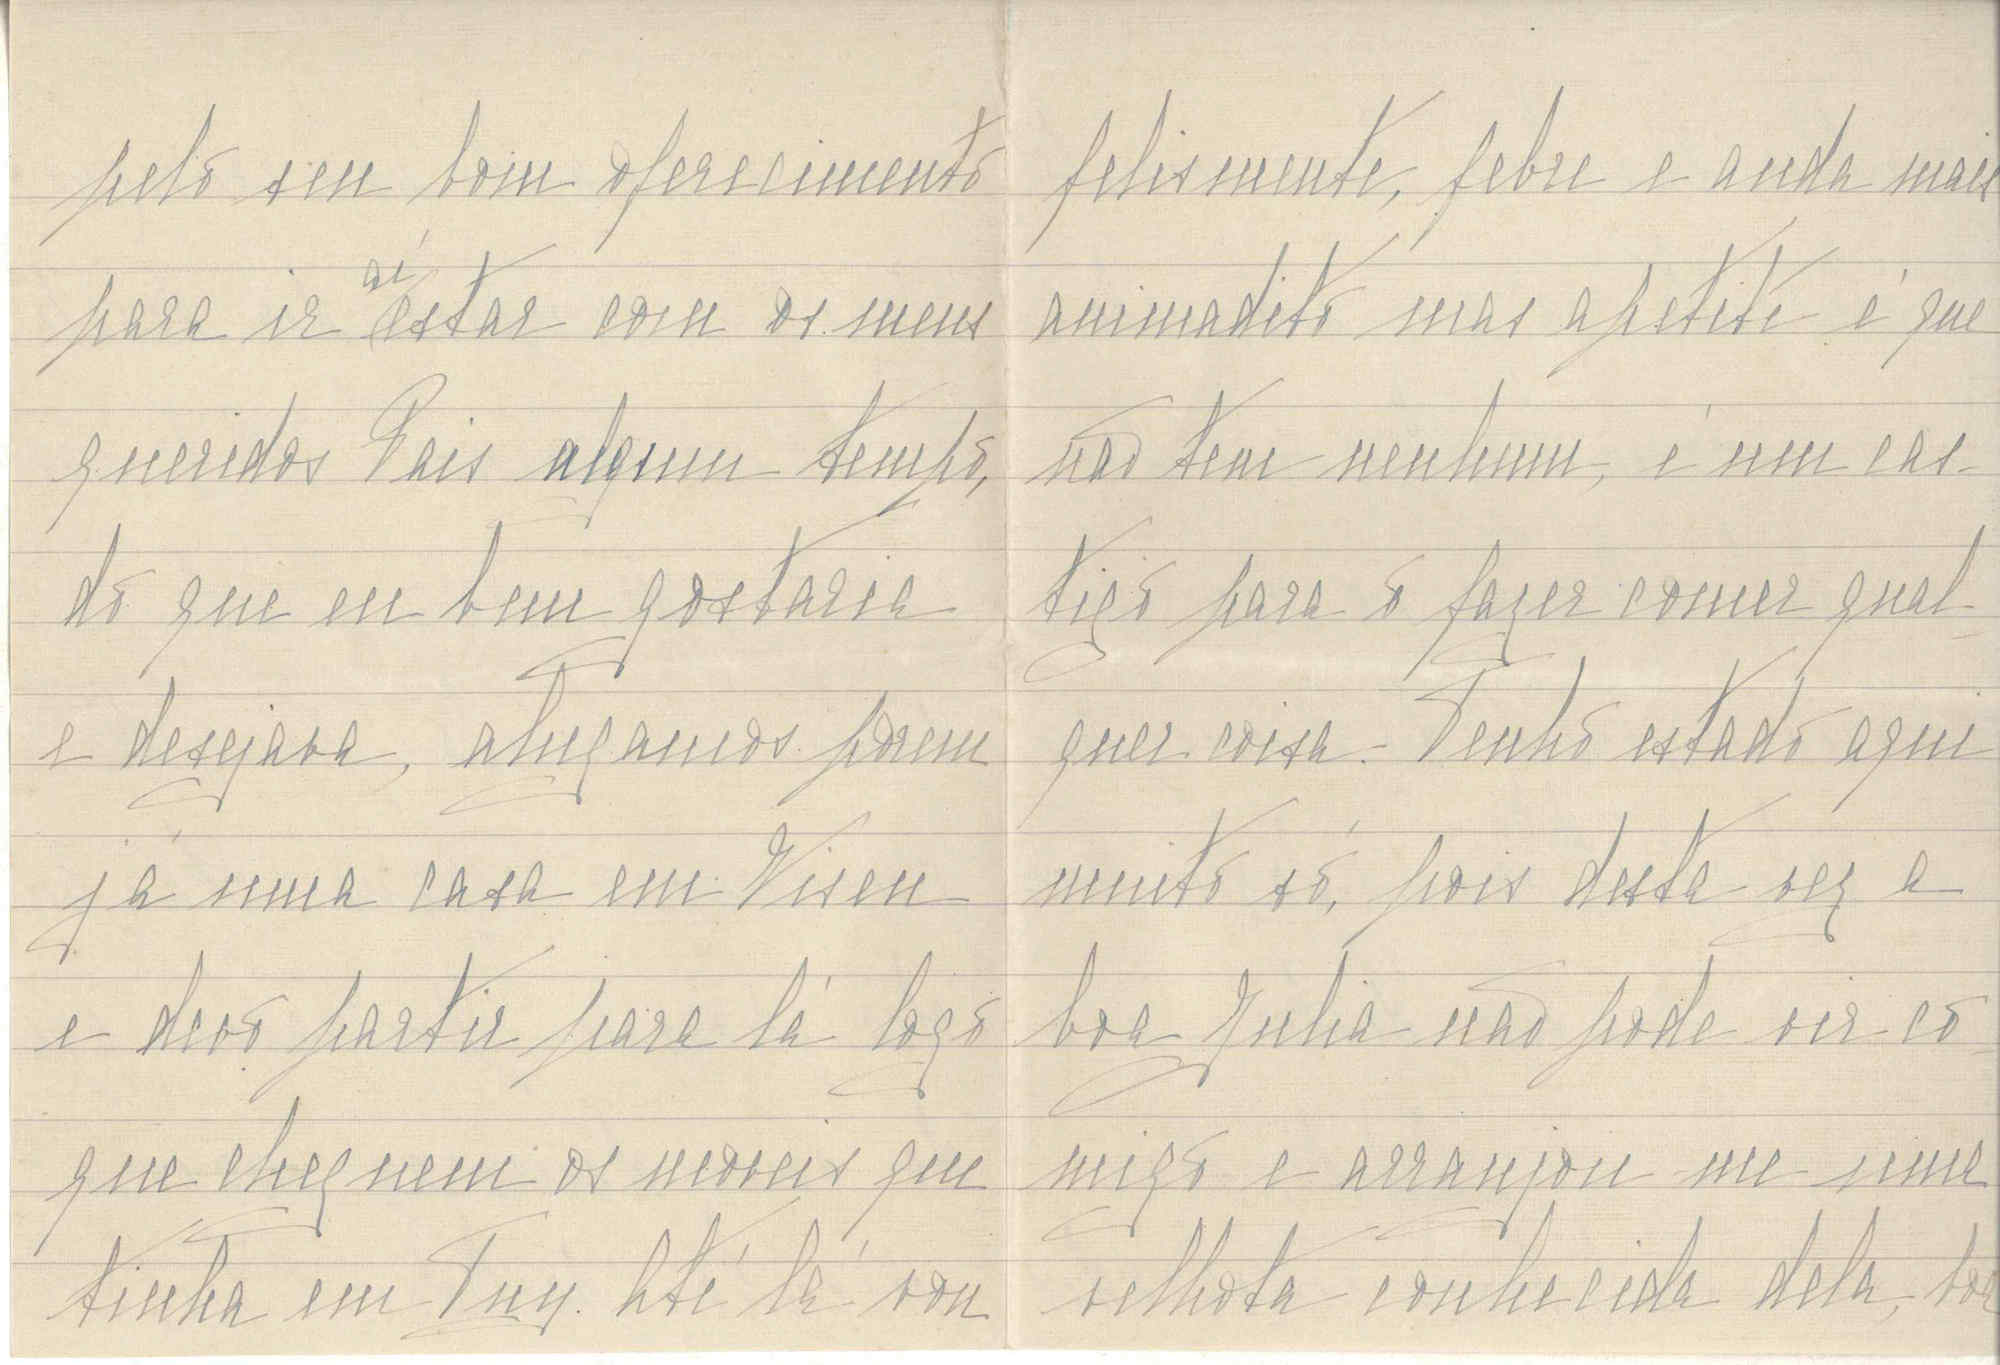 pelo seu bom oferecimento
para ir aí estar com os meus
queridos Pais algum tempo,
do que eu bem gostaria
e desejava, alugamos porem
já uma casa em Viseu
e devo partir para lá logo
que cheguem os moveis que
tinha em Tuy. Até lá vou
felismente, febre e anda mais
animadito mas apetite é que
não tem nenhum, é um cas-
tigo para o fazer comer qual-
quer coisa. Tenho estado aqui
muito só, pois desta vez a
boa Julia não pode vir co-
migo e arranjou me uma
velhota conhecida dela, boa